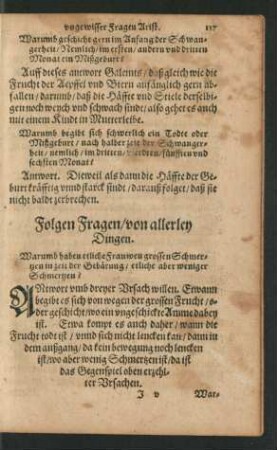 vngewisser Fragen Arist. 117
Warumb geschicht gern im Anfang der Schwan-
gerheit / Nemlich / im ersten / andern vnd dritten
Monat ein Mißgeburt?
Auff dieses antwort Galenus / daß gleich wie die
Frucht der Aepffel vnd Birn anfänglich gern ab-
fallen / darumb / daß die Häffte vnd Stiele derselbi-
gen noch weych vnd schwach sindt / also gehet es auch
mit einem Kindt in Mutterleibe.
Warumb begibt sich schwerlich ein Todte oder
Mißgeburt / nach halber zeit der Schwanger-
heit / nemlich / im dritten / vierdten / fünfften vnd
sechsten Monat?
Antwort. Dieweil als dann die Häffte der Ge-
burt kräfftig vnnd starck sindt / darauß folget / daß sie
nicht baldt zerbrechen.
Folgen Fragen / von allerley
Dingen.
Warumb haben etliche Frauwen grossen Schmer-
tzen in zeit der Gebärung / etliche aber weniger
Schmertzen?
ANtwort vmb dreyer Vrsach willen. Etwann
begibt es sich von wegen der grossen Frucht / o-
der geschicht / wo ein vngeschickte Amme dabey
ist. Etwa kompt es auch daher / wann die
Frucht todt ist / vnnd sich nicht lencken kan / dann in
dem außgang / da kein bewegung noch lencken
ist / wo aber wenig Schmertzen ist / da ist
das Gegenspiel oben erzehl-
ter Vrsachen.
J v War-